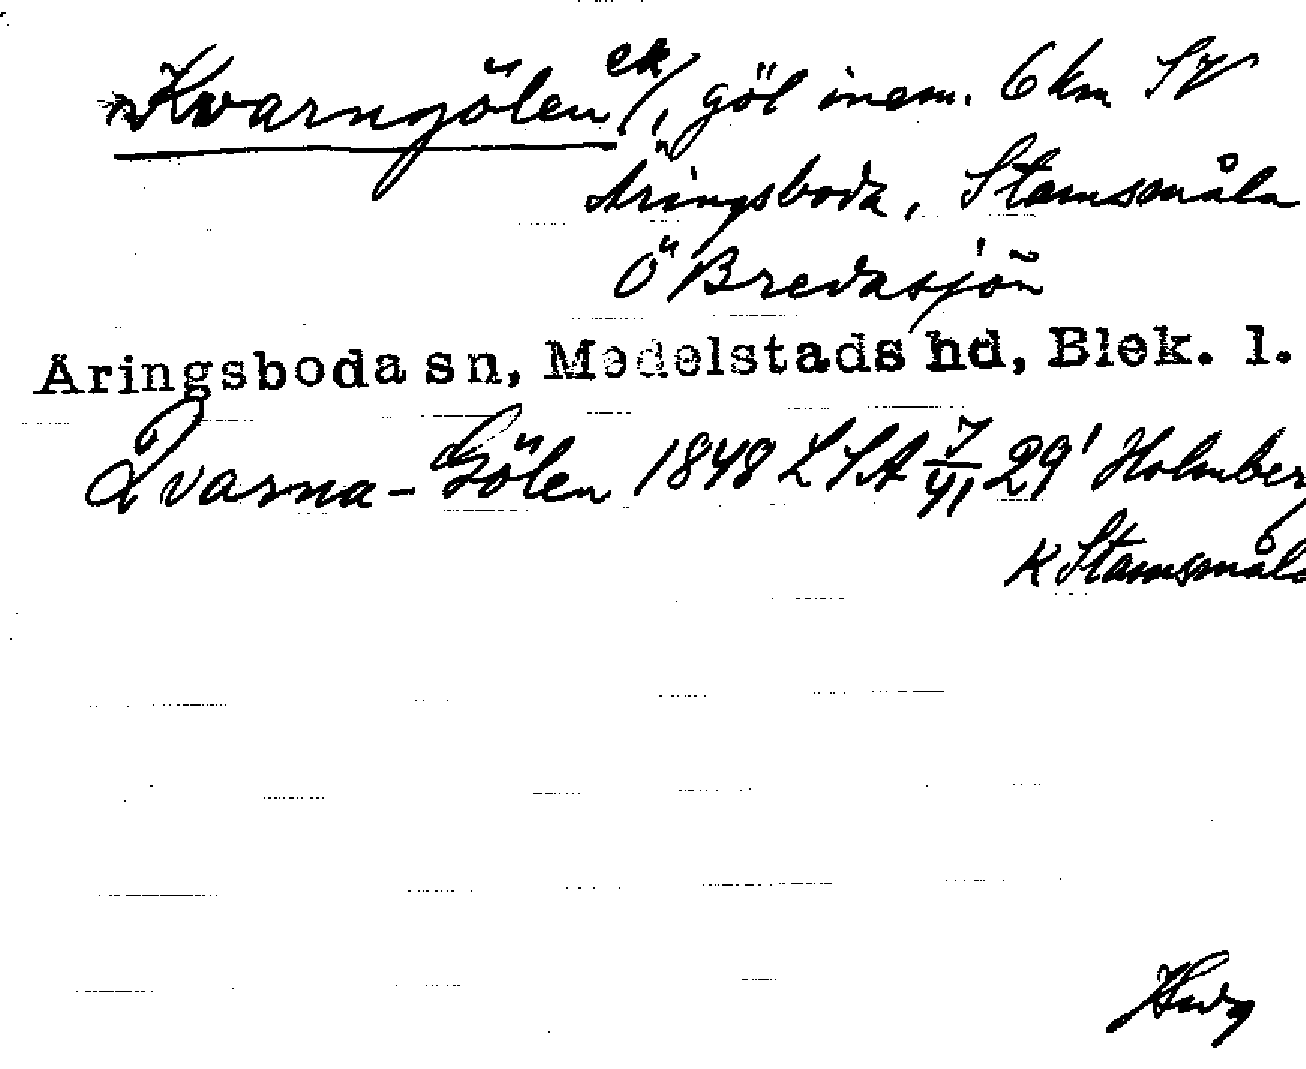 Kvarngölen ek/, göl inom. 6 km SV
Äringsboda, Stamsmåla
Ö Bredasjön
Äringsboda sn, Medelstads hd, Blek. l.
Qvarna-Gölen 1848 LSA 7/41 29' Holmberg
K Stamsmåla